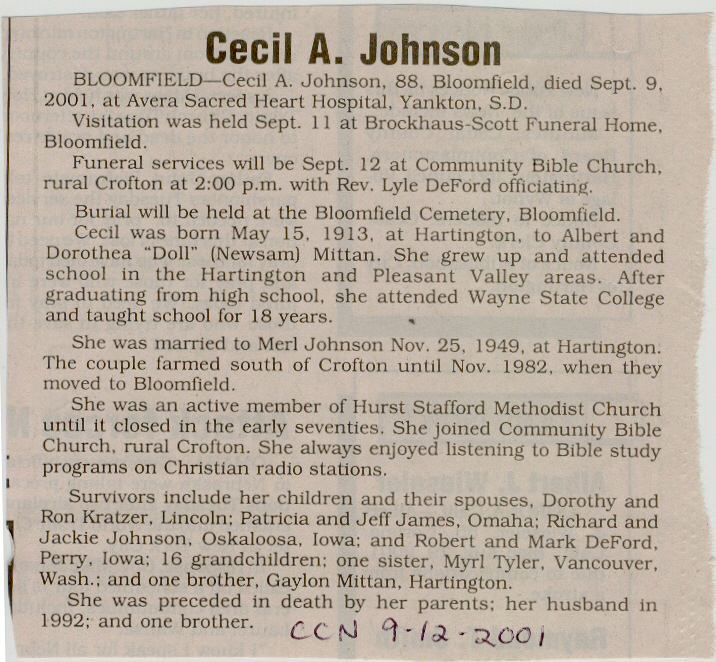 Cecil A. Johnson
BLOOMFIELD—Cecil A. Johnson, 88, Bloomfield, died Sept. 9,
2001, at Avera Sacred Heart Hospital, Yankton, S.D.
Visitation was held Sept. 11 at Brockhaus-Scott Funeral Home,
Bloomfield.
Funeral services will be Sept. 12 at Community Bible Church,
rural Crofton at 2:00 p.m. with Rev. Lyle DeFord officiating.
Burial will be held at the Bloomfield Cemetery, Bloomfield.
Cecil was born May 15, 1913, at Hartington, to Albert and
Dorothea “Doll” (Newsam) Mittan. She grew up and attended
school in the Hartington and Pleasant Valley areas. After
graduating from high school, she attended Wayne State College
and taught school for 18 years.
She was married to Merl Johnson Nov. 25, 1949, at Hartington.
The couple farmed south of Crofton until Nov. 1982, when they
moved to Bloomfield.
She was an active member of Hurst Stafford Methodist Church
until it closed in the early seventies. She joined Community Bible
Church, rural Crofton. She always enjoyed listening to Bible study
programs on Christian radio stations.
Survivors include her children and their spouses, Dorothy and
Ron Kratzer, Lincoln; Patricia and Jeff James, Omaha; Richard and
Jackie Johnson, Oskaloosa, Iowa; and Robert and Mark DeFord,
Perry, Iowa; 16 grandchildren; one sister, Myrl Tyler, Vancouver,
Wash.; and one brother, Gaylon Mittan, Hartington.
She was preceded in death by her parents; her husband in
1992; and one brother.
CCN 9-12-2001